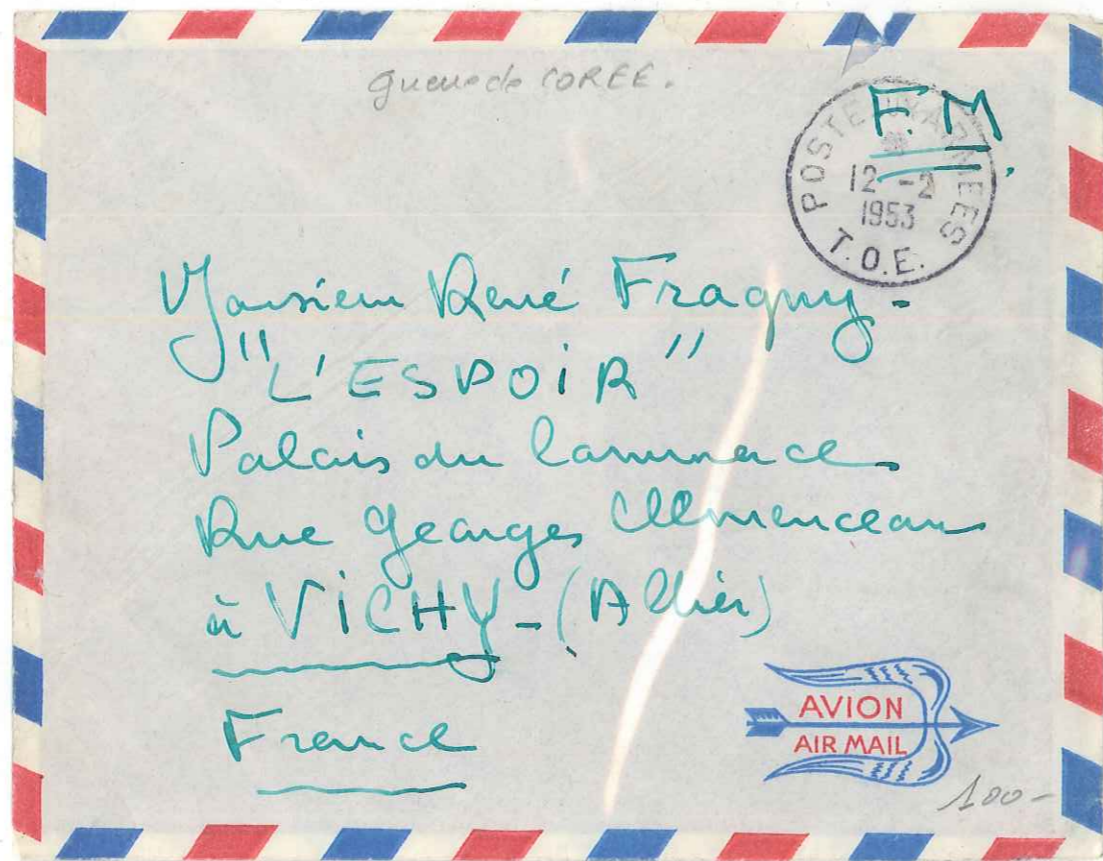 guerre de COREE.
F.M.
POSTE AUX ARMEES
12-2
1953
T.O.E.
Monsieur René Fragny -
"L'ESPOIR"
Palais du Commerce
Rue Georges Clemenceau
à VICHY - (Allier)
France
AVION
AIR MAIL
100-